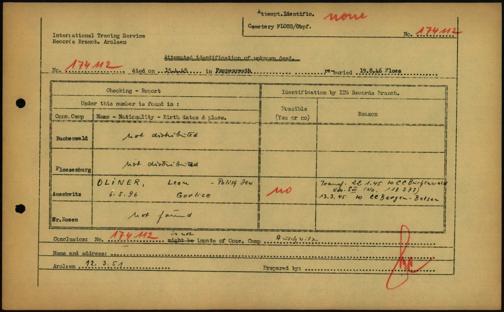 Attempt.Identific. none
Cemetery FLOSS/Obpf.
International Tracing Service
Records Branch. Arolsen
No. 174112
Attempted identification of unknown dead.
No. 174112 died on in re-buried 19.8.46 Floss
Checking - Report
Identification by ITS Records Branch.
Under this number is found in :
Possible (Yes or no)
Reason
Conc.Camp Name - Nationality - Birth dates & place.
Buchenwald not distributed
Flossenburg not distributed
Auschwitz OLINER, Leon - Polish Jew no Transf. 22.1.45 to CC Buchenwald
6.5.96 Gorlice
13.3.45 to CC Bergen-Belsen
Gr.Rosen not found
Conclusions: No. 174112 is not might be inmate of Conc. Camp Auschwitz
Name and address:
Arolsen 12.3.51 Prepared by: